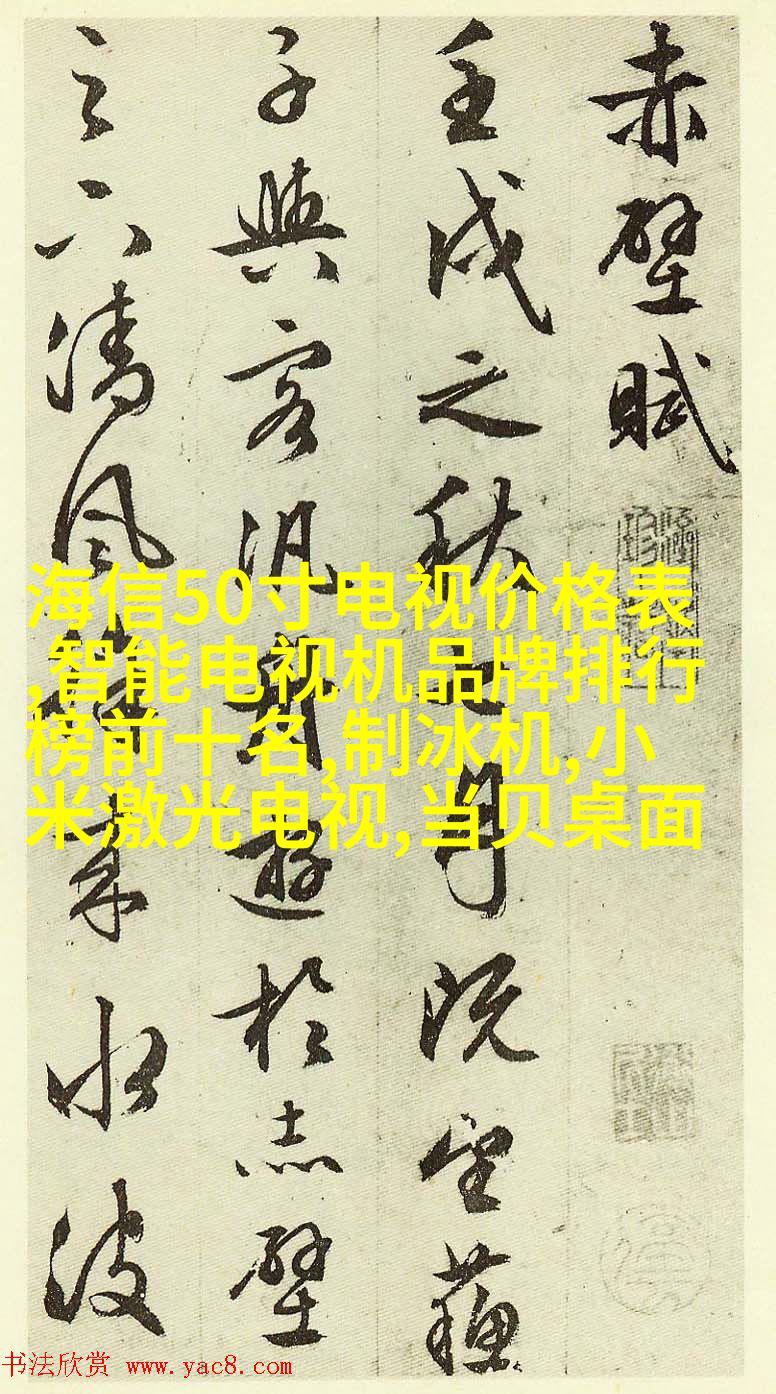 赤壁賦
壬戌之秋七月既望蘇
子與客汎舟遊於赤壁
之下清風徐來水波
海信50寸电视价格表
,智能电视机品牌排行
榜前十名,制冰机,小
米激光电视,当贝桌面
书法欣赏 www.yac8.com